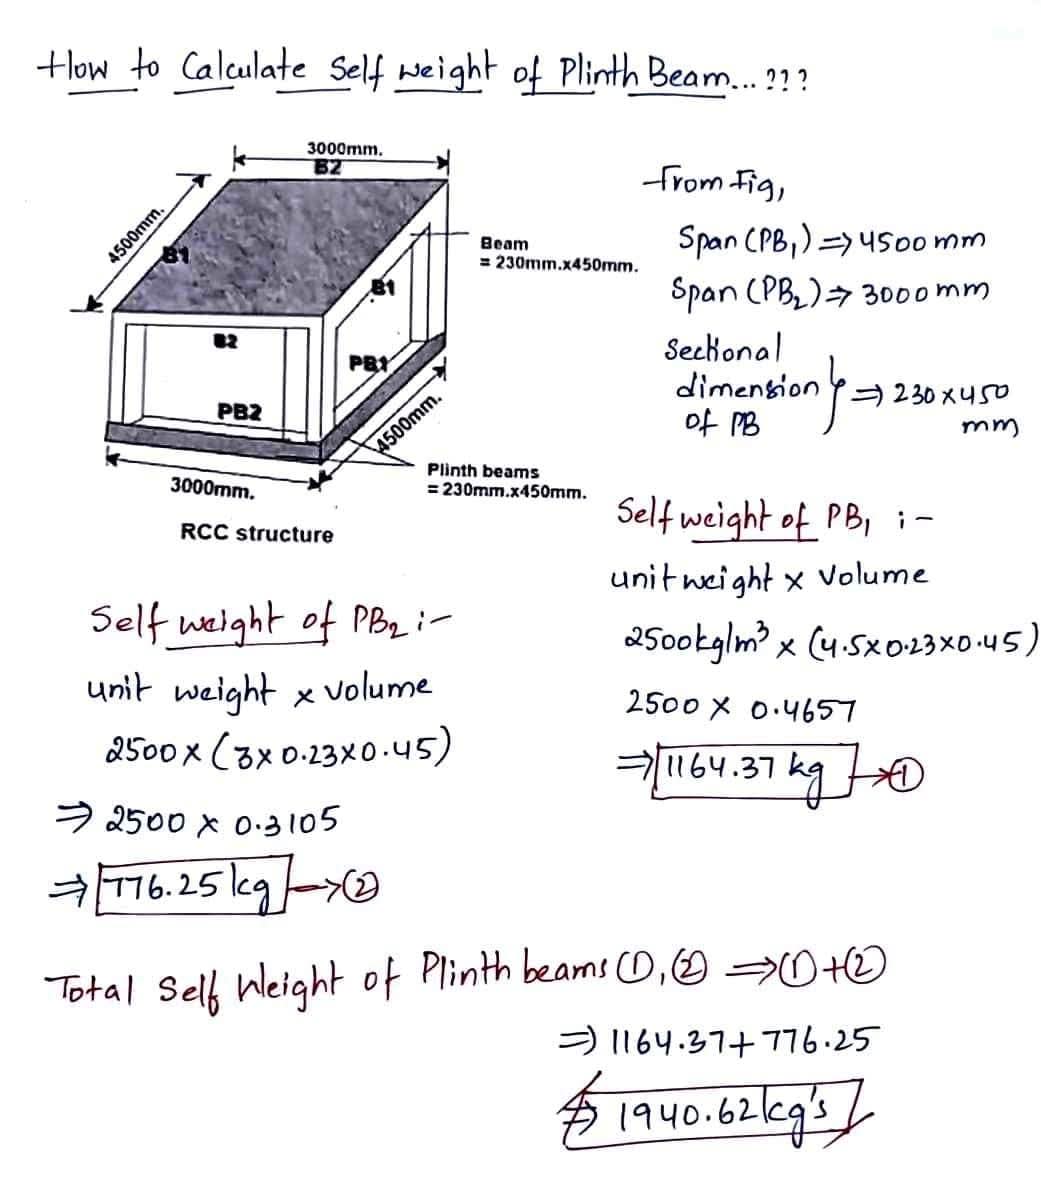 How to Calculate Self weight of Plinth Beam...???
3000mm.
B2
4500mm.
B1
Beam
= 230mm.x450mm.
B1
B2
PB1
PB2
4500mm.
3000mm.
Plinth beams
= 230mm.x450mm.
RCC structure
From Fig,
Span (PB₁) ⇒ 4500 mm
Span (PB₂) ⇒ 3000 mm
Sectional
dimension } ⇒ 230 x 450
of PB mm
Self weight of PB₁ :-
unit weight x Volume
2500kg/m³ x (4.5x0.23x0.45)
2500 x 0.4657
⇒ 1164.37 kg → ①
Self weight of PB₂ :-
unit weight x volume
2500 x (3x0.23x0.45)
⇒ 2500 x 0.3105
⇒ 776.25 kg → ②
Total Self Weight of Plinth beams ①, ② ⇒ ① + ②
⇒ 1164.37 + 776.25
⇒ 1940.62 kg's